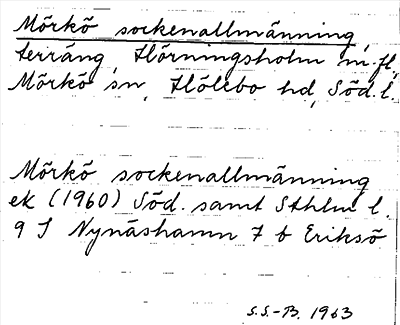 Mörkö sockenallmänning,
terräng, Hörningsholm m.fl,
Mörkö sn, Hölebo hd, Söd. l.
Mörkö sockenallmänning
ek (1960) Söd. samt Sthlm l.
9 I Nynäshamn 7 b Eriksö
S.S.-B. 1963